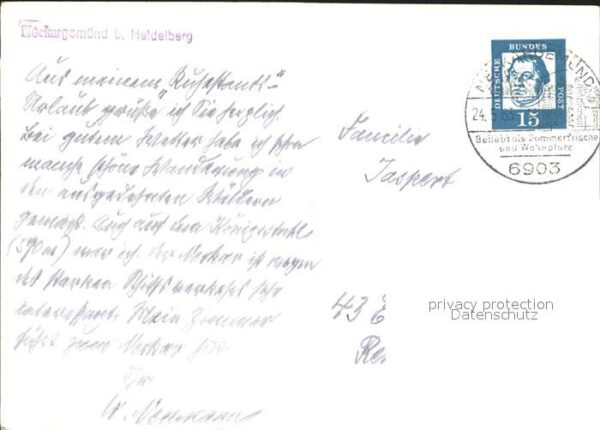 Neckargemünd b. Heidelberg
Aus meinem „Ruhestands"-
Urlaub grüße ich Sie herzlich.
Bei gutem Wetter habe ich schon
manche schöne Wanderung in
den ausgedehnten Wäldern
gemacht. Auch auf dem Königstuhl
war ich. Der Neckar ist wegen
des starken Schiffsverkehrs sehr
interessant. Mein Zimmer
zum Neckar
Ihr
Familie
Jaspert
43 E
Re
DEUTSCHE
BUNDES
POST
15
24.
Beliebt als Sommerfrische
und Wohnplatz
6903
privacy protection
Datenschutz